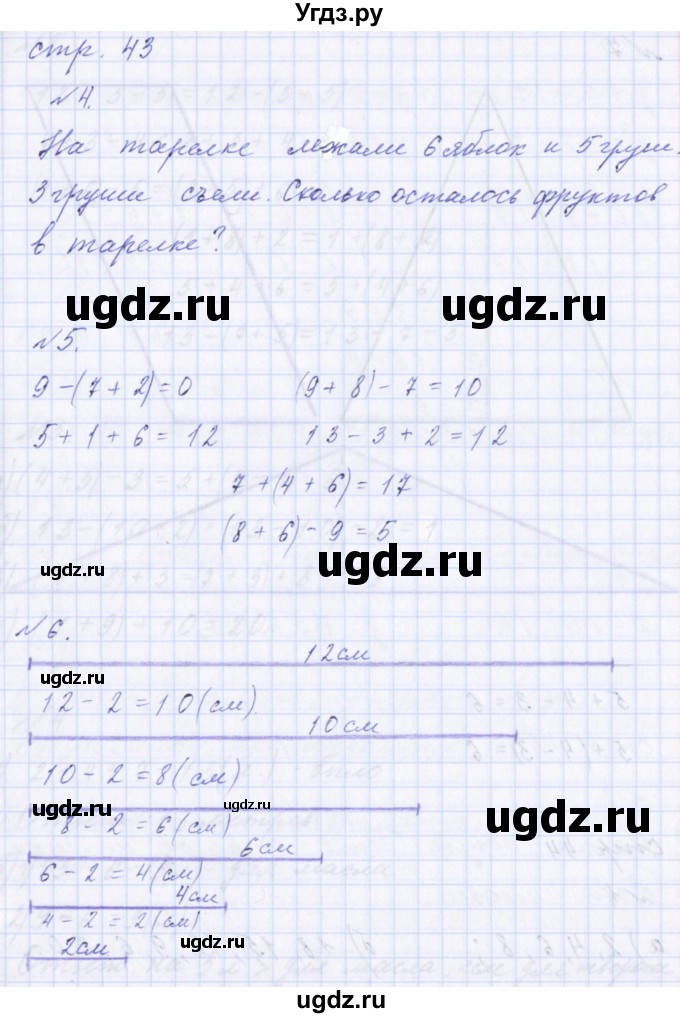 Угдз.ру
стр. 43
№4.
На тарелке лежали 6 яблок и 5 груш.
3 груши съели. Сколько осталось фруктов
в тарелке?
ugdz.ru ugdz.ru
№5.
9-(7+2)=0 (9+8)-7=10
5+1+6=12 13-3+2=12
7+(4+6)=17
(8+6)-9=5
ugdz.ru ugdz.ru
№6.
12см
ugdz.ru
12-2=10(см).
10см
10-2=8(см)
ugdz.ru ugdz.ru
8-2=6(см)
6см
6-2=4(см)
4см
4-2=2(см)
ugdz.ru
2см
ugdz.ru